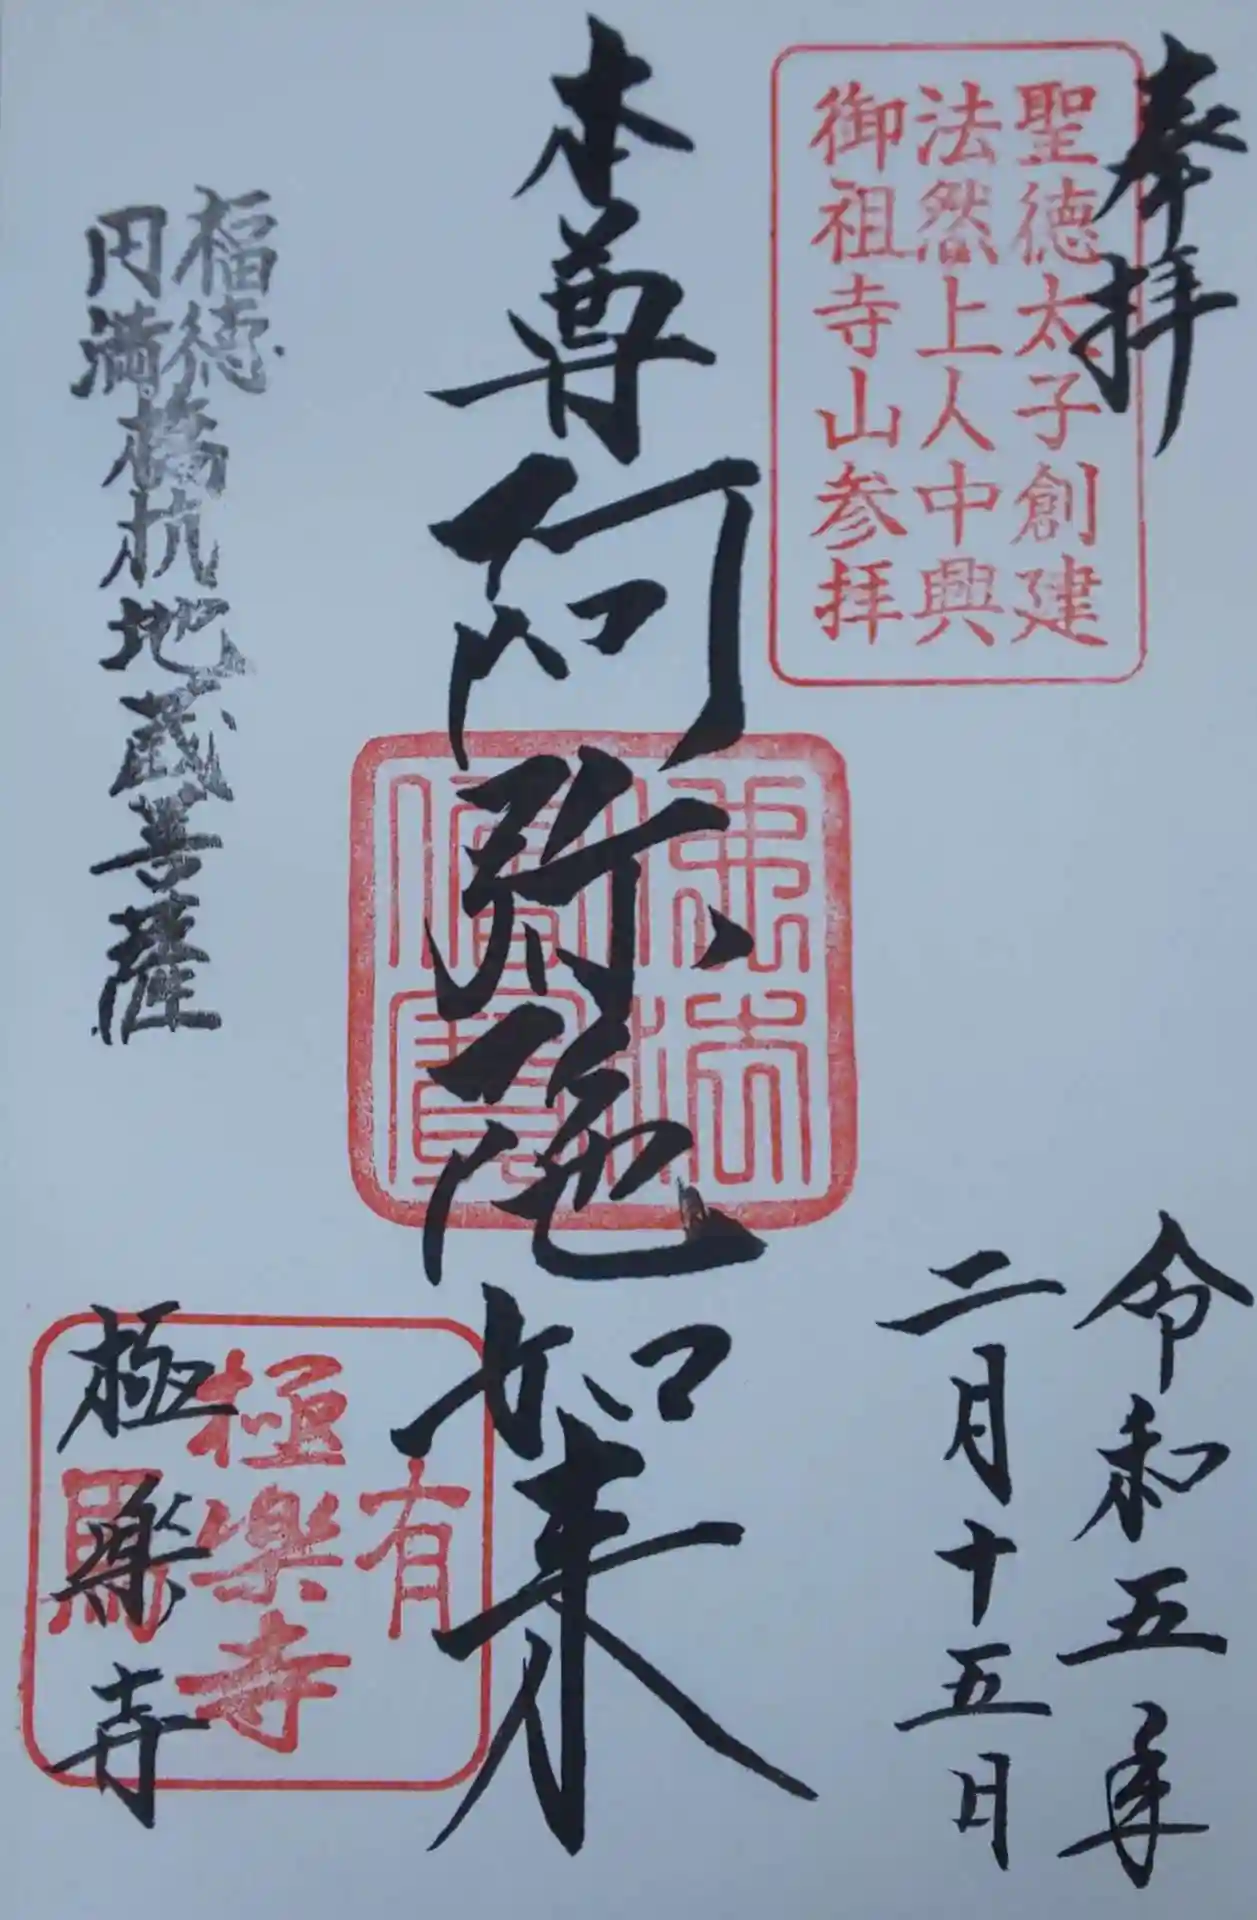 奉拝
聖徳太子創建
法然上人中興
御祖寺山参拝
令和五年
二月十五日
本尊阿弥陀如来
佛法
僧寳
福徳
円満
橋杭地蔵菩薩
有
極楽寺
馬
極楽寺